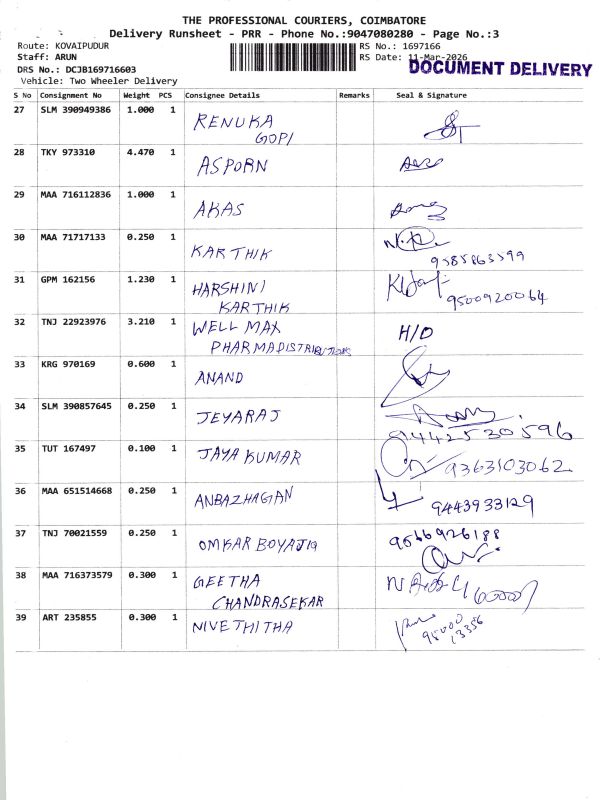 THE PROFESSIONAL COURIERS, COIMBATORE
Delivery Runsheet - PRR - Phone No.:9047080280 - Page No.:3
Route: KOVAIPUDUR RS No.: 1697166
Staff: ARUN RS Date: 11-Mar-2026
DOCUMENT DELIVERY
DRS No.: DCJB169716603
Vehicle: Two Wheeler Delivery
S No Consignment No Weight PCS Consignee Details Remarks Seal & Signature
27 SLM 390949386 1.000 1 RENUKA
GOPI
28 TKY 973310 4.470 1 ASPORN
29 MAA 716112836 1.000 1 AKAS
30 MAA 71717133 0.250 1 KARTHIK
9585863599
31 GPM 162156 1.230 1 HARSHINI
KARTHIK 9500920064
32 TNJ 22923976 3.210 1 WELL MAX H/O
PHARMADISTRIBUTIONS
33 KRG 970169 0.600 1 ANAND
34 SLM 390857645 0.250 1 JEYARAJ
9442530596
35 TUT 167497 0.100 1 JAYA KUMAR 9363103062
36 MAA 651514668 0.250 1 ANBAZHAGAN 9443933129
37 TNJ 70021559 0.250 1 OMKAR 9566926188
38 MAA 716373579 0.300 1 GEETHA
CHANDRASEKAR
39 ART 235855 0.300 1 NIVETHITHA
95000
13356